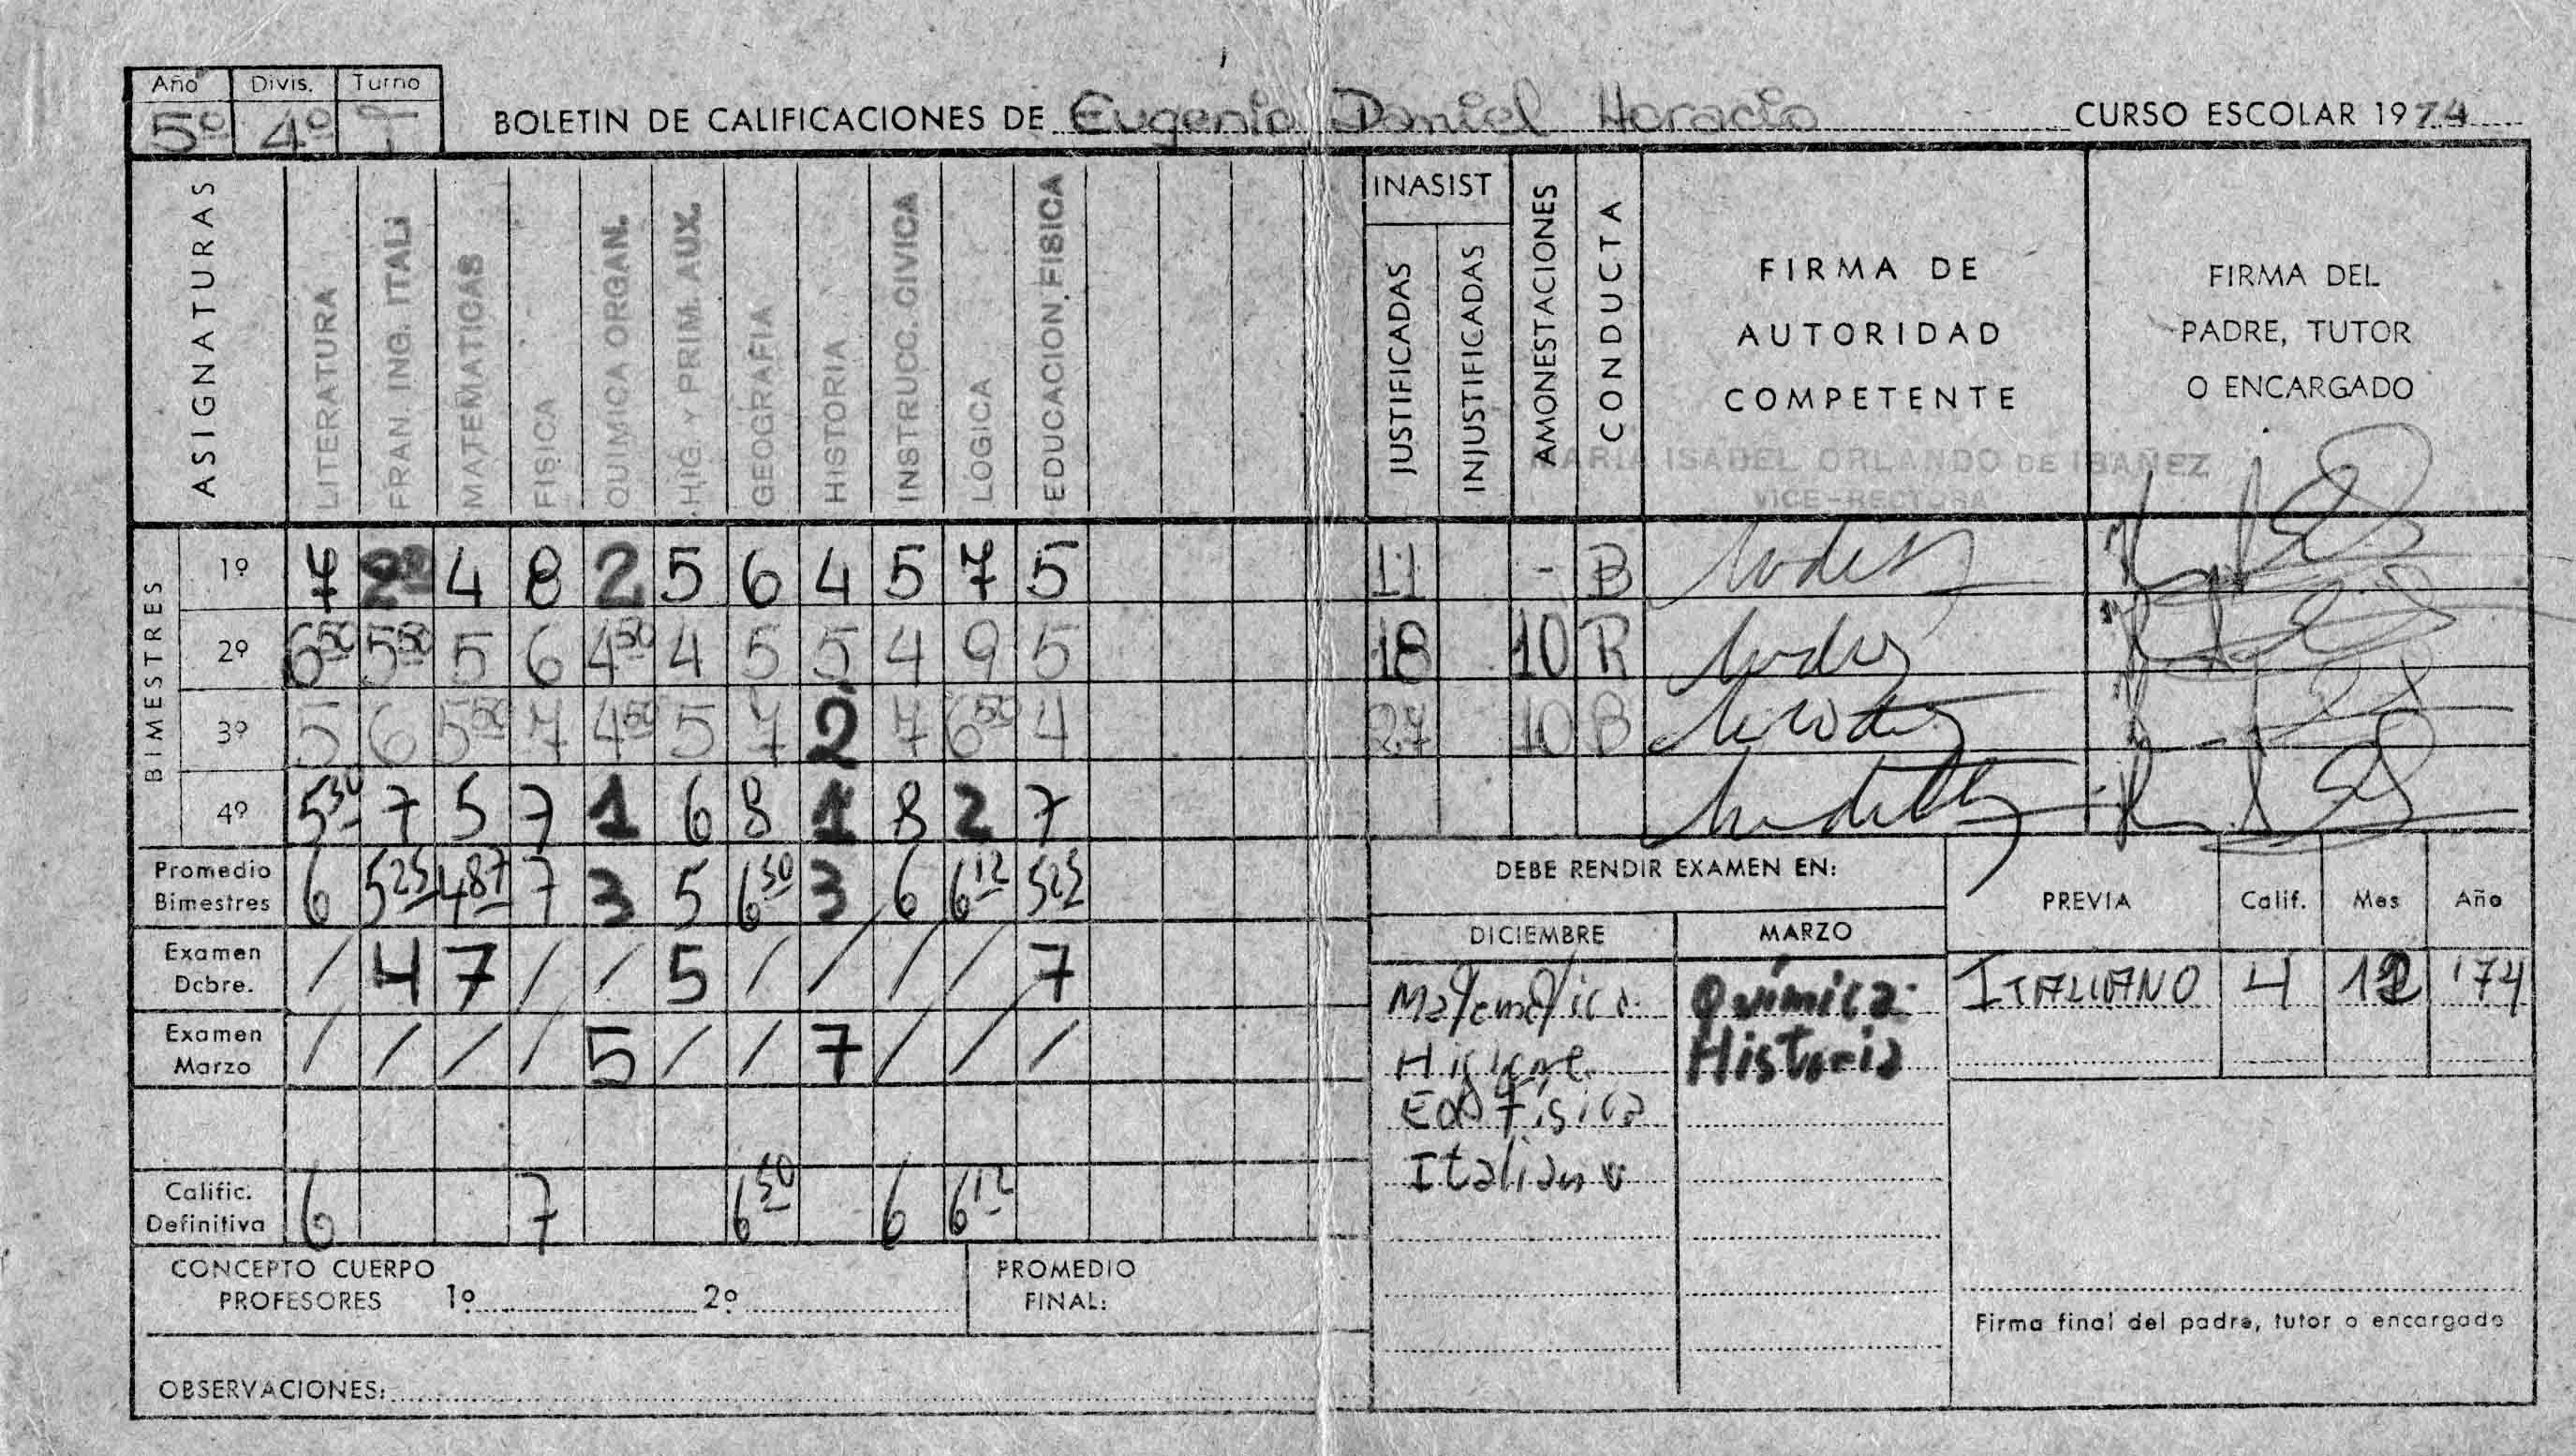 Año Divis. Turno
5º 4º T
BOLETIN DE CALIFICACIONES DE Eugenio Daniel Horacio CURSO ESCOLAR 1974
ASIGNATURAS LITERATURA FRAN. ING. ITALI MATEMATICAS FISICA QUIMICA ORGAN. HIG. Y PRIM. AUX. GEOGRAFIA HISTORIA INSTRUCC. CIVICA LOGICA EDUCACION FISICA
INASIST
JUSTIFICADAS INJUSTIFICADAS AMONESTACIONES CONDUCTA
FIRMA DE
AUTORIDAD
COMPETENTE
FIRMA DEL
PADRE, TUTOR
O ENCARGADO
MARIA ISABEL ORLANDO DE IBAÑEZ
VICE-RECTORA
BIMESTRES
1º 7 4 8 2 5 6 4 5 7 5 11 - B
2º 6 50 5 50 5 6 4 50 4 5 5 4 9 5 18 10 R
3º 5 6 5 50 7 4 50 5 7 2 7 6 50 4 27 10 B
4º 5 50 7 5 7 1 6 8 1 8 2 7
Promedio
Bimestres 6 5 25 4 87 7 3 5 6 50 3 6 6 12 5 25
Examen
Dcbre. / 4 7 / / 5 / / / / 7
Examen
Marzo / / / / 5 / / 7 / / /
Calific.
Definitiva 6 7 6 50 6 6 12
CONCEPTO CUERPO
PROFESORES 1º 2º
PROMEDIO
FINAL:
OBSERVACIONES:
DEBE RENDIR EXAMEN EN:
DICIEMBRE MARZO
Matemática Química
Higiene Historia
Ed Física
Italiano
PREVIA Calif. Mes Año
ITALIANO 4 12 '74
Firma final del padre, tutor o encargado